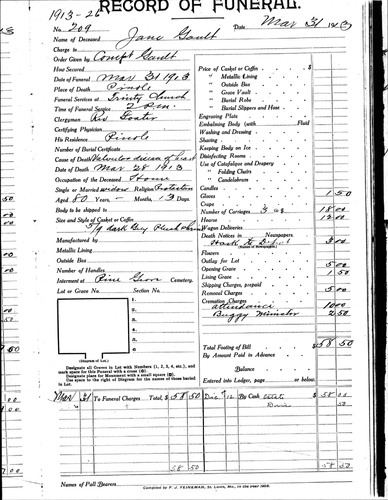 1913-26
RECORD OF FUNERAL.
No. 209 Date Mar 31 1913
Name of Deceased Jane Gault
Charge to
Order Given by Gault
How Secured
Date of Funeral Mar 31 1913
Place of Death Pinole
Funeral Services at Trinity Church
Time of Funeral Service 2 P.m.
Clergyman Rev
Certifying Physician
His Residence Pinole
Number of Burial Certificate
Cause of Death Valvular disease of heart
Date of Death Mar 28 1913
Occupation of the Deceased Home
Single or Married widow Religion Protestant
Aged 80 Years - Months, 13 Days
Body to be shipped to
Size and Style of Casket or Coffin
5/9 dark Grey Plush
Manufactured by
Metallic Lining
Outside Box
Number of Handles
Interment at Pine Grove Cemetery.
Lot or Grave No. Section No.
1.
2.
3.
4.
5.
6.
(Diagram of Lot.)
Designate all Graves in Lot with Numbers (1, 2, 3, 4, etc.), and
mark space for this Funeral with a cross
Designate place for Monument with a small square
Use space to the right of Diagram for the names of those buried
in Lot.
Price of Casket or Coffin $
" Metallic Lining
" Outside Box
" Grave Vault
" Burial Robe
" Burial Slippers and Hose
Engraving Plate
Embalming Body (with Fluid)
Washing and Dressing
Shaving
Keeping Body on Ice
Disinfecting Room
Use of Catafalque and Drapery
" Folding Chairs
" Candelabrum
Candles
Gloves 1 50
Crape
Number of Carriages 3 18 00
Hearse 12 00
Wagon Deliveries
Death Notices in Newspapers
3 00
(Names of Newspapers)
Flowers
Outlay for Lot 5 00
Opening Grave
Lining Grave 1 50
Shipping Charges, prepaid
Removal Charges 5 00
Cremation Charges
attendance 10 00
Buggy Minister 2 50
Total Footing of Bill $58 50
By Amount Paid in Advance
Balance
Entered into Ledger, page or below.
Mar 31 To Funeral Charges Total, $58 50 Dec 12 By Cash $58 00
50
58 50 58 50
Names of Pall Bearers
Compiled by F. J. FEINEMAN, St. Louis, Mo., in the year 1909.